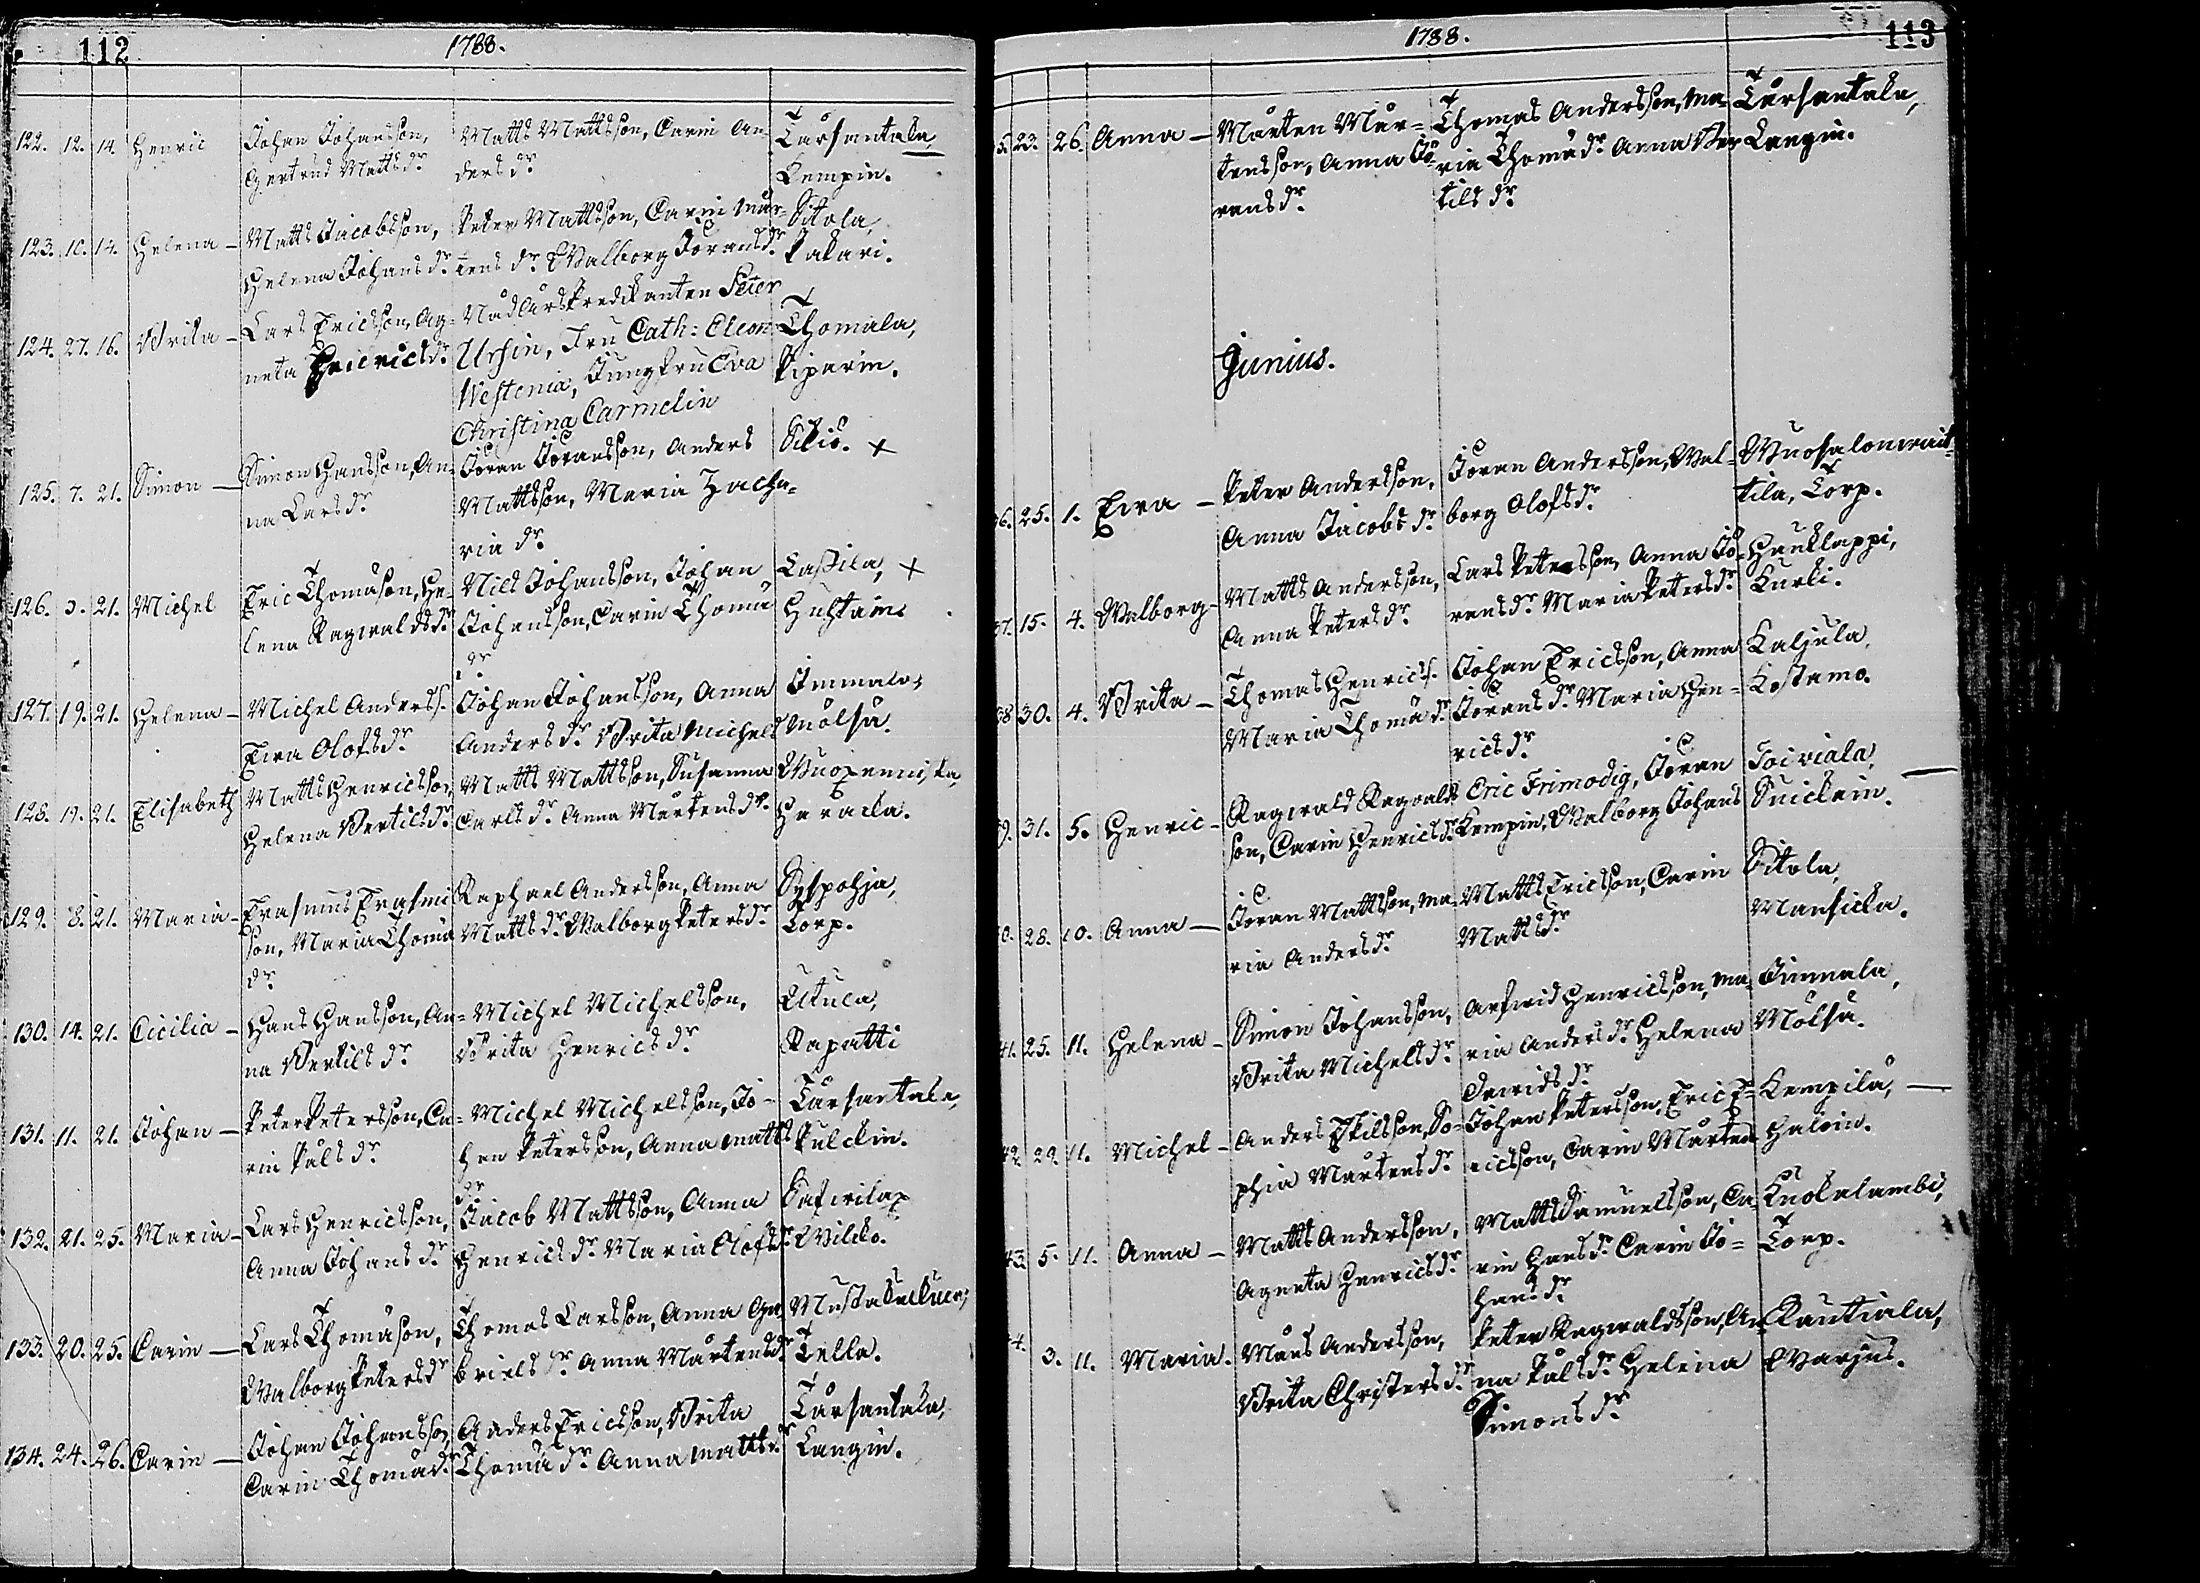 112
1788.
122. 12. 14. Henric
Johan Johansson,
Gertrud Matts dr
Matts Mattsson, Carin An
ders dr
Tarsantala,
Kempin.
123. 10. 14. Helena —
Matts Jacobsson,
Helena Johans dr
Peter Mattsson, Carin Mår=
tens dr Walborg Jörans dr
Sitola,
Pakari.
124. 27. 16. Brita —
Lars Ericsson, Ag=
neta Henrics dr
Nådårs Predikanten Peter
Ursin, Fru Cath: Eleon
Westenia, Jungfru Eva
Christina Carmelin
Thomala,
Piparin.
125. 7. 21. Simon —
Simon Hansson, An=
na Lars dr
Jöran Jöransson, Anders
Mattsson, Maria Zacha=
riæ dr
Sikiö. +
126. 3. 21. Michel
Eric Thomason, He=
lena Ragwalds dr
Nils Johansson, Johan
Johansson, Carin Thomæ
dr
Lassila, +
127. 19. 21. Helena —
Michel Anderss.
Eva Olofs dr
Johan Johansson, Anna
Anders dr Brita Michels
Immala,
Mölsä.
128. 19. 21. Elisabeth
Matts Henricsson,
Helena Bertils dr
Matts Mattsson, Susanna
Carls dr Anna Mårtens dr
Wuoxenniska,
Haracka.
129. 8. 21. Maria —
Erasmus Erasmi
son, Maria Thomæ
dr
Raphael Andersson, Anna
Matts dr Walborg Peters dr
Syspohja,
Torp.
130. 14. 21. Cicilia —
Hans Hansson, An=
na Bertils dr
Michel Michelsson,
Brita Henrics dr
Utula,
Rapatti
131. 11. 21. Johan —
Peter Petersson, Ca=
rin Påls dr
Michel Michelsson, Jo-
han Petersson, Anna Matts
dr
Tarsantala,
Pulckin.
132. 21. 25. Maria —
Lars Henricsson,
Anna Johans dr
Jacob Mattsson, Anna
Henrics dr Maria Olofs dr
Wilcko.
133. 20. 25. Carin —
Lars Thomason,
Walborg Peters dr
Thomas Larsson, Anna Ga
briels dr Anna Mårtens dr
Tella.
134. 24. 26. Carin —
Johan Johansson,
Carin Thomæ dr
Anders Ericsson, Brita
Thomæ dr Anna Matts dr
Tarsantala,
Langin.
113
1788.
5. 23. 26. Anna —
Mårten Mår=
tensson, Anna Jö
rens dr
Thomas Andersson, Ma
ria Thomæ dr Anna Ber
tils dr
Tarsantala,
Langin.
Junius.
36. 25. 1. Eva —
Peter Andersson,
Anna Jacobs dr
Jöran Andersson, Wal=
borg Olofs dr
Wuosalonvait
tila, Torp.
37. 15. 4. Walborg —
Matts Andersson,
Anna Peters dr
Lars Petersson, Anna Jö
rens dr Maria Peters dr
Hauklappi,
Kurki.
38 30. 4. Brita —
Thomas Henricss.
Maria Thomæ dr
Johan Ericsson, Anna
Jörans dr Maria Hen=
rics dr
Kaljula,
Kostamo.
39. 31. 5. Henric —
Ragwald Ragwalds
son, Carin Henrics dr
Eric Frimodig, Jöran
Kempin, Walborg Johans
Toiviala,
Suickain.
0. 28. 10. Anna —
Jöran Mattsson, Ma=
ria Anders dr
Matts Ericsson, Carin
Matts dr
Sitola,
Mansicka.
41. 25. 11. Helena —
Simon Johansson,
Brita Michels dr
Arfwid Henricsson, Ma=
ria Anders dr Helena
Davids dr
Immala,
Mölsä.
42. 29. 11. Michel —
Anders Eskilsson, So=
phia Mårtens dr
Johan Petersson, Eric E=
ricsson, Carin Mårtens
Kempilä, —
Haloin.
43. 5. 11. Anna —
Matts Andersson,
Agneta Henrics dr
Matts Samuelsson, Ca=
rin Hans dr Carin Jo=
hans dr
Kuokalambi,
Torp.
4. 3. 11. Maria.
Måns Andersson,
Brita Christers dr
Peter Ragwaldsson, An
na Påls dr Helena
Simons dr
Rautiala,
Warjus.